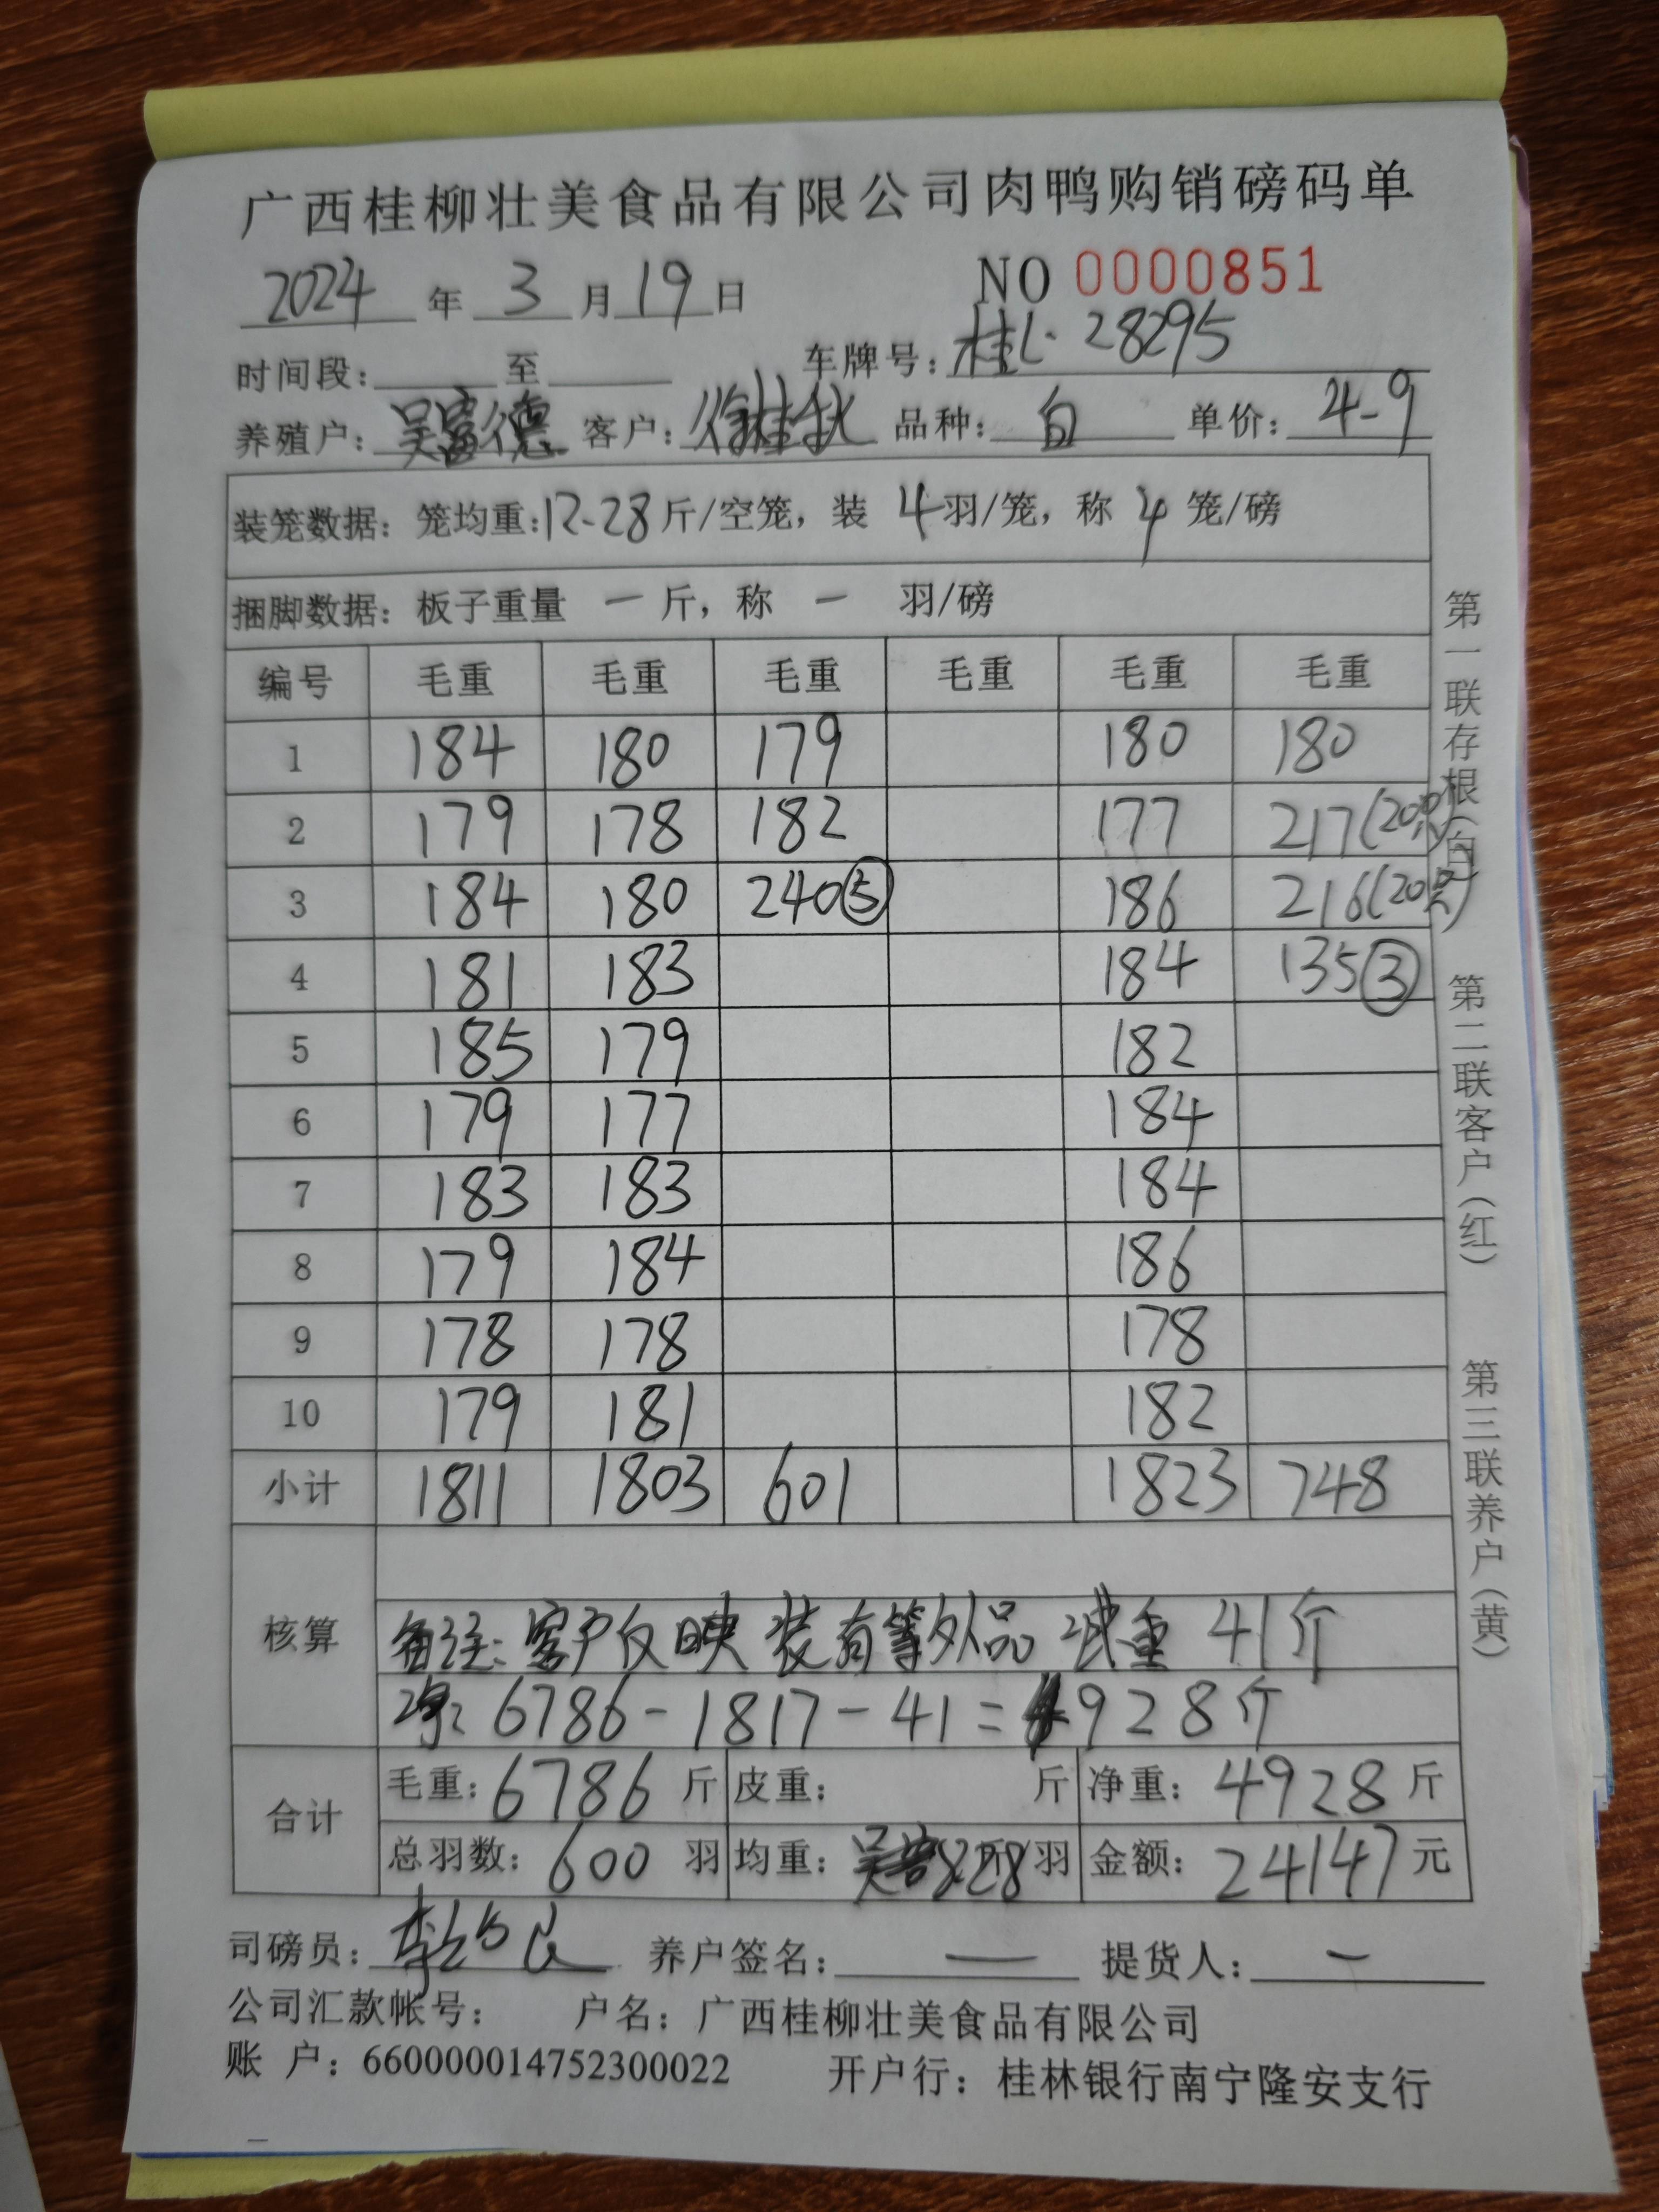 广西桂柳壮美食品有限公司肉鸭购销磅码单
2024 年 3 月 19 日 NO 0000851
时间段: 至 车牌号: 桂L·28295
养殖户: 吴富德 客户: 徐桂秋 品种: 白 单价: 4-9
装笼数据: 笼均重: 12-28 斤/空笼, 装 4 羽/笼, 称 4 笼/磅
捆脚数据: 板子重量 一 斤, 称 一 羽/磅
编号 毛重 毛重 毛重 毛重 毛重 毛重
1 184 180 179 180 180
2 179 178 182 177 217(20只)
3 184 180 240⑤ 186 216(20只)
4 181 183 184 135③
5 185 179 182
6 179 177 184
7 183 183 184
8 179 184 186
9 178 178 178
10 179 181 182
小计 1811 1803 601 1823 748
核算
备注: 客户反映装有等外品 减重 41斤
净: 6786-1817-41=4928斤
合计
毛重: 6786 斤 皮重: 斤 净重: 4928 斤
总羽数: 600 羽 均重: 8.28 羽 金额: 24147 元
司磅员: 养户签名: 一 提货人: 一
公司汇款帐号: 户名: 广西桂柳壮美食品有限公司
账 户: 660000014752300022 开户行: 桂林银行南宁隆安支行
第一联存根(白) 第二联客户(红) 第三联养户(黄)